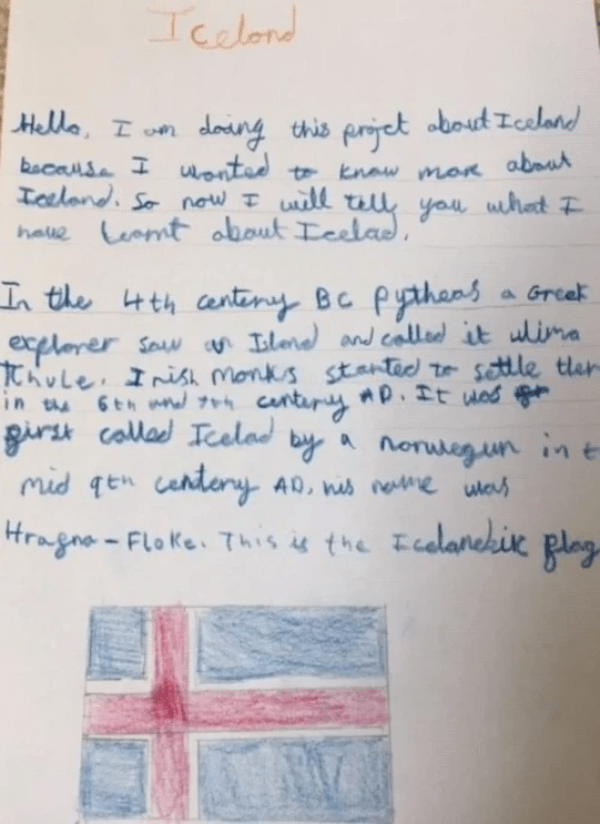 Icelond
Hello, I am doing this projet about Iceland
because I wanted to know more about
Iceland. So now I will tell you what I
have learnt about Icelad.
In the 4th centery BC pytheas a Greek
explorer saw an Island and called it ulima
Thule. Irish monks started to settle ther
in the 6th and 7th centery AD. It was
first called Icelad by a norwegun in t
mid 9th centery AD, his name was
Hrafna-Floke. This is the flag